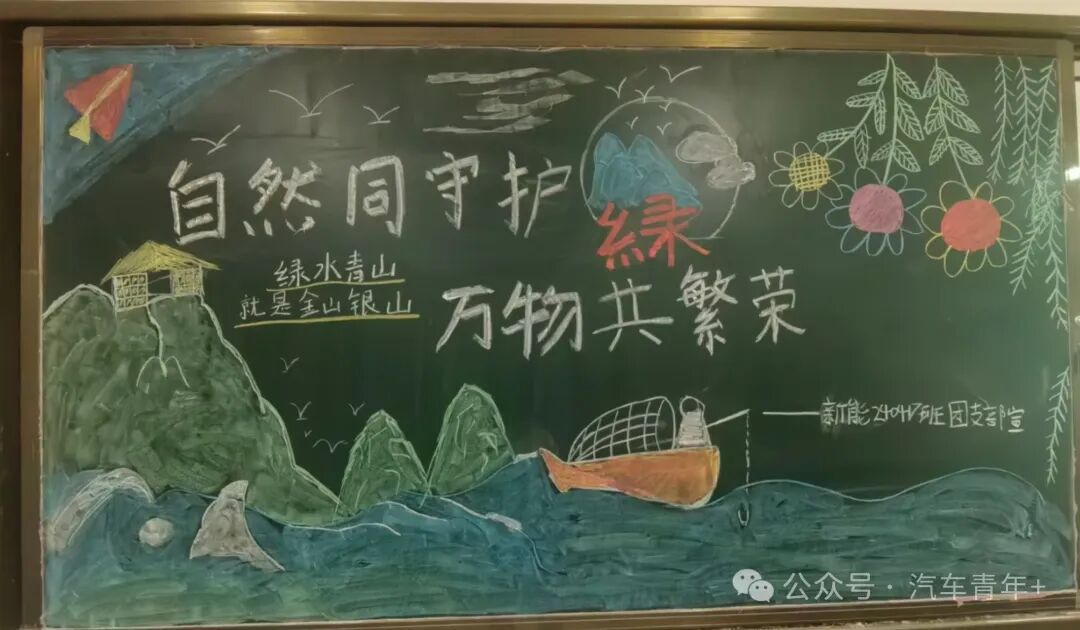 自然同守护
緑
绿水青山
就是金山银山
万物共繁荣
——新能2404班团支部宣
公众号·汽车青年+